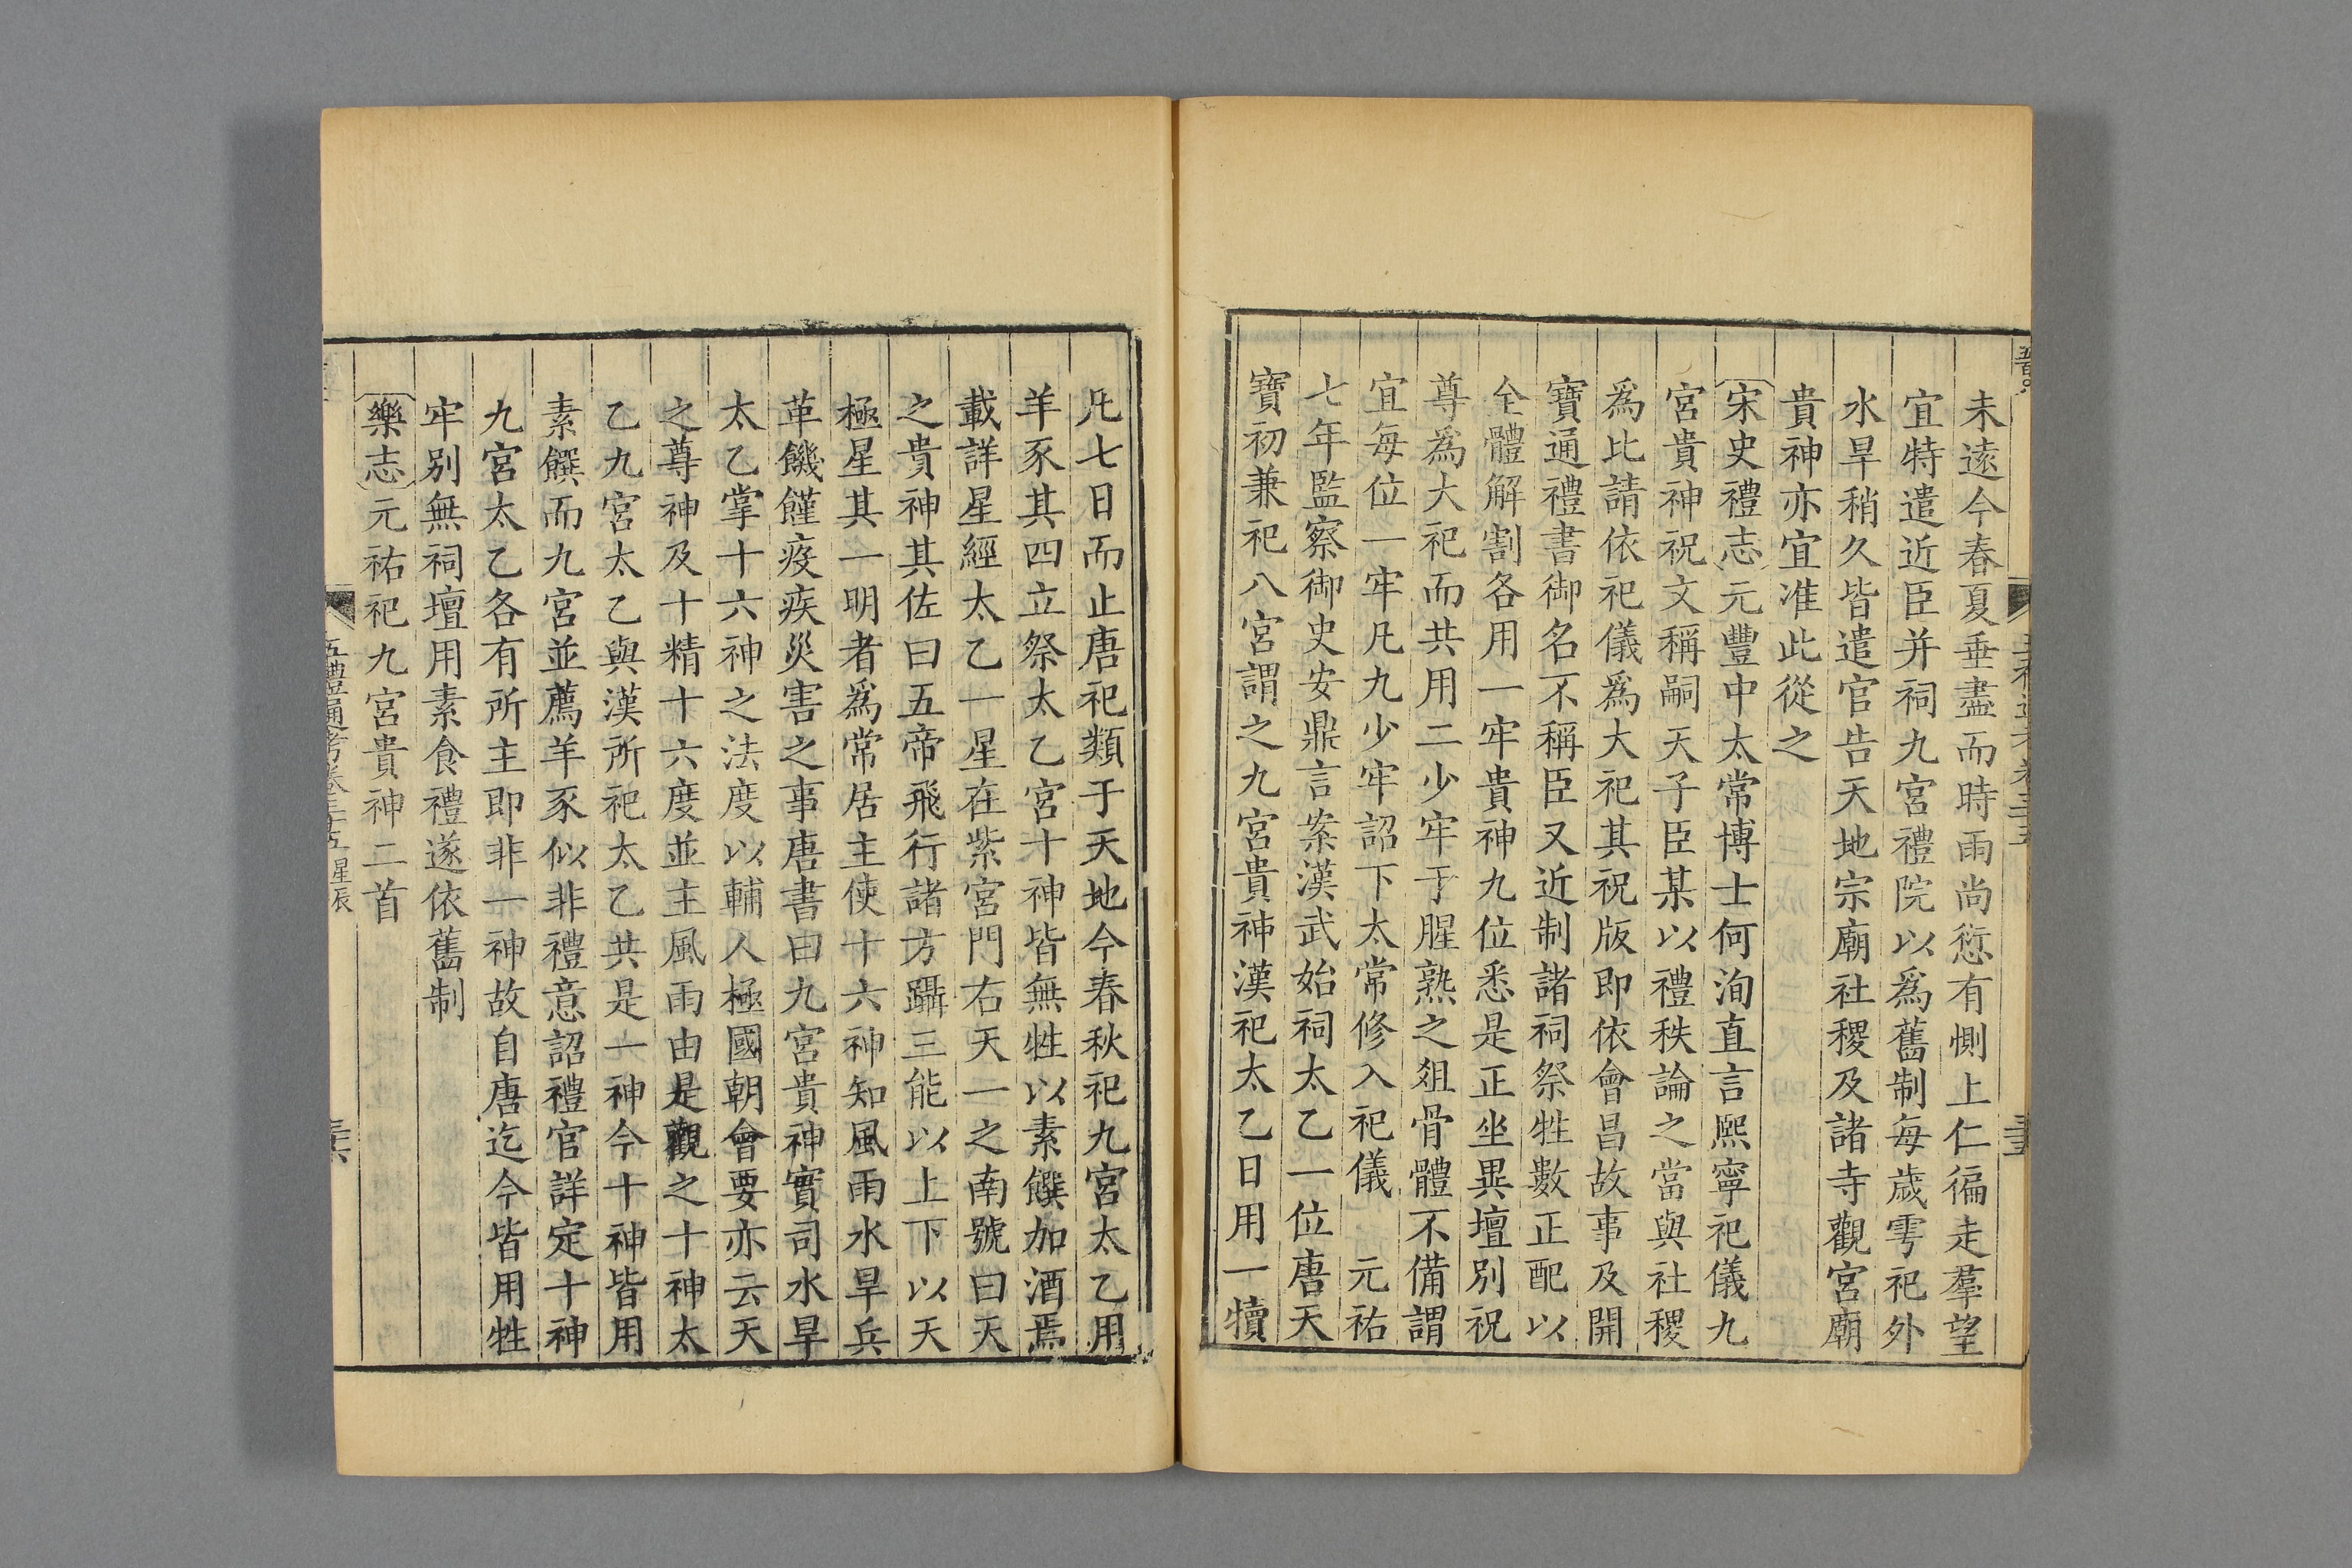 未遠今春夏垂盡而時雨尚愆有惻上仁徧走羣望
宜特遣近臣并祠九宮禮院以爲舊制每歲雩祀外
水旱稍久皆遣官告天地宗廟社稷及諸寺觀宮廟
貴神亦宜准此從之
宋史禮志元豐中太常博士何洵直言熙寧祀儀九
宮貴神祝文稱嗣天子臣某以禮秩論之當與社稷
爲比請依祀儀爲大祀其祝版即依會昌故事及開
寶通禮書御名不稱臣又近制諸祠祭牲數正配以
全體解割各用一牢貴神九位悉是正坐異壇別祝
尊爲大祀而共用二少牢于腥熟之俎骨體不備謂
宜每位一牢凡九少牢詔下太常修入祀儀 元祐
七年監察御史安鼎言案漢武始祠太乙一位唐天
寶初兼祀八宮謂之九宮貴神漢祀太乙日用一犢
凡七日而止唐祀類于天地今春秋祀九宮太乙用
羊豕其四立祭太乙宮十神皆無牲以素饌加酒焉
載詳星經太乙一星在紫宮門右天一之南號曰天
之貴神其佐曰五帝飛行諸方躡三能以上下以天
極星其一明者爲常居主使十六神知風雨水旱兵
革饑饉疫疾災害之事唐書曰九宮貴神實司水旱
太乙掌十六神之法度以輔人極國朝會要亦云天
之尊神及十精十六度並主風雨由是觀之十神太
乙九宮太乙與漢所祀太乙共是一神今十神皆用
素饌而九宮並薦羊豕似非禮意詔禮官詳定十神
九宮太乙各有所主即非一神故自唐迄今皆用牲
牢別無祠壇用素食禮遂依舊制
樂志元祐祀九宮貴神二首
五禮通考卷三十五 星辰
三六